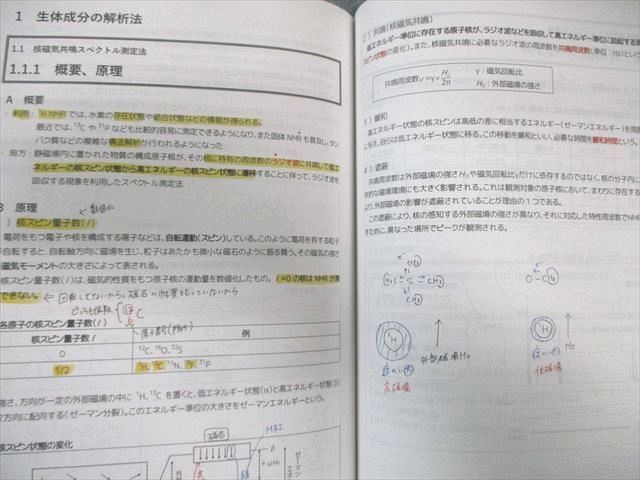 1 生体成分の解析法
1.1 核磁気共鳴スペクトル測定法
1.1.1 概要、原理
A 概要
・利用：¹H NMR では、水素の存在状態や結合状態などの情報が得られる。
最近では、¹³C や ³¹P なども比較的容易に測定できるようになり、また固体 NMR も普及し、タン
パク質などの複雑な構造解析が行われるようになった
方：静磁場内に置かれた物質の構成原子核が、その核に特有の周波数のラジオ波に共鳴して低エ
ネルギーの核スピン状態から高エネルギーの核スピン状態に遷移することに伴って、ラジオ波を
吸収する現象を利用したスペクトル測定法
B 原理
）核スピン量子数(I)
電荷をもつ電子や核を構成する陽子などは、自転運動(スピン)している。このように電荷を有する粒子
が自転すると、自転軸方向に磁場を生じ、粒子はあたかも微小な磁石のように振る舞う。その磁気の強さ
磁気モーメントの大きさによって表される。
核スピン量子数(I)は、磁気的性質をもつ原子核の運動量を数値化したもの。I=0の核はNMRが測
できない。
← 回転してないから磁石の性質をもっていないから
各原子の核スピン量子数(I)
核スピン量子数 I
例
0
¹²C, ¹⁶O, ³²S
1/2
¹H, ¹³C, ¹⁵N, ¹⁹F, ³¹P
強さ、方向が一定の外部磁場の中に ¹H, ¹³C を置くと、低エネルギー(α)と高エネルギー状態(β)
2方向に配向する(ゼーマン分裂)。このエネルギー準位の大きさをゼーマンエネルギーという。
核スピン状態の変化
MRI
2) 共鳴(核磁気共鳴)
低エネルギー準位に存在する原子核が、ラジオ波などを吸収して高エネルギー準位に励起する
スピン状態の変化)。また、核磁気共鳴に必要なラジオ波の周波数を共鳴周波数(単位：Hz)という
共鳴周波数 ν=γ×H₀/2π
γ：磁気回転比
H₀：外部磁場の強さ
3) 緩和
高エネルギー状態の核スピンは高低の差に相当するエネルギー(ゼーマンエネルギー)を周
に与え、自らは低エネルギー状態に移る。この移動を緩和といい、必要な時間を緩和時間という。
4) 遮蔽
共鳴周波数は外部磁場の強さ H₀ や磁気回転比 γ だけに依存するのではなく、核の分子内に
的な磁場環境にも大きく影響される。これは観測対象の原子核において、まわりに存在する
より、外部磁場の影響が遮蔽されていることが理由の1つである。
この遮蔽により、核の感知する外部磁場の強さが異なり、それに対応した特性周波数で NMR
すために、異なった場所でピークが観測される。
CH₃
H₃C-Si-CH₃
CH₃
O-CH₃
H
外部磁場 H₀
高磁場
H
H₀
低磁場